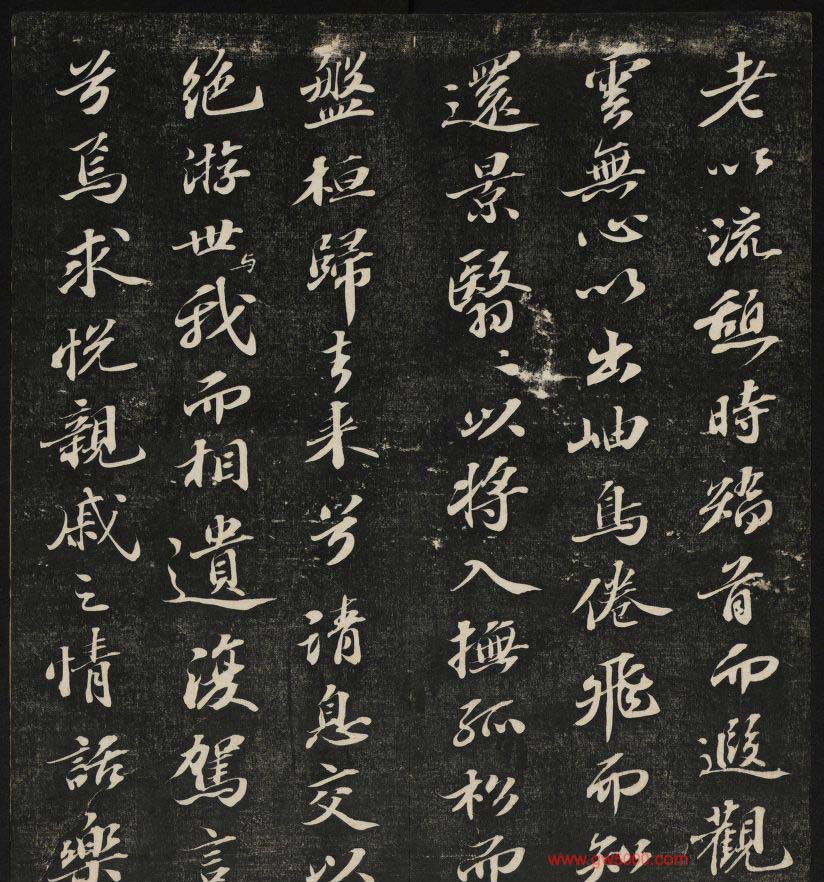 老以流憩時矯首而遐觀
雲無心以出岫鳥倦飛而知
還景翳〻以將入撫孤松而
盤桓歸去来兮請息交以
绝游世与我而相遺復駕言
兮焉求悦親戚之情話樂
www.gw5000.com